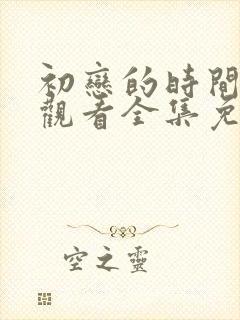 初戀的時間
觀看全集免
空之靈